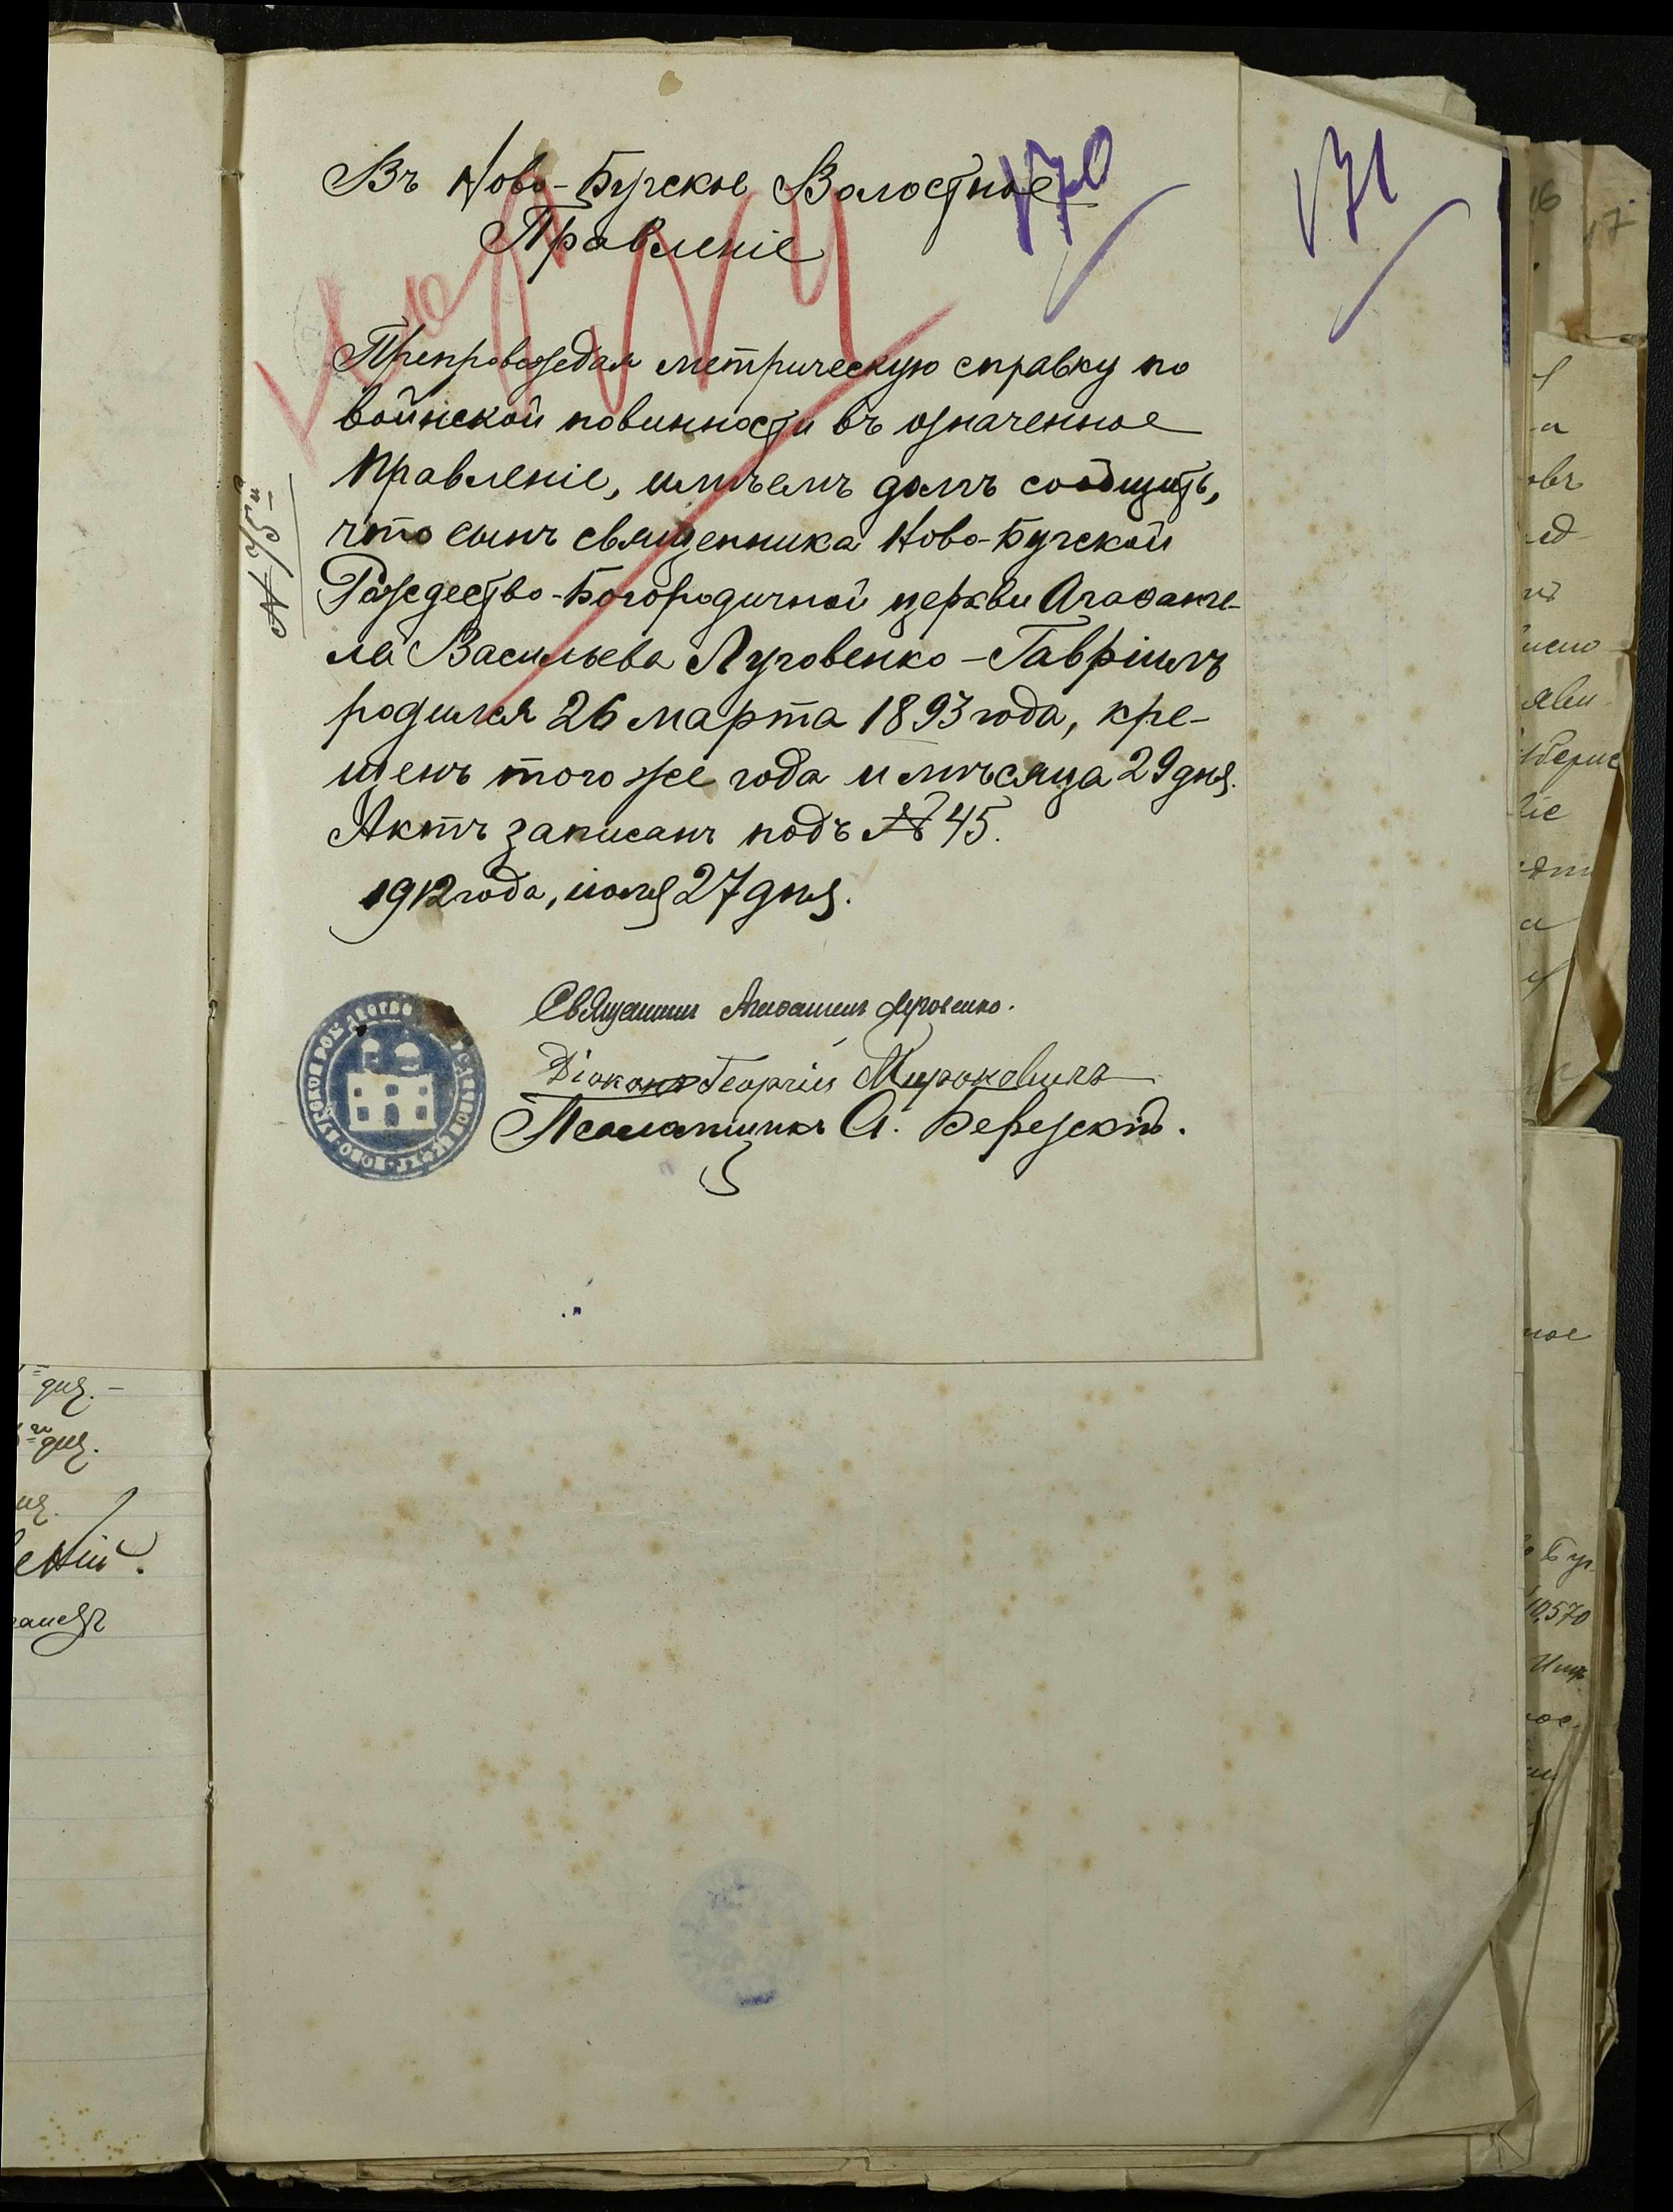 170
171
Въ Ново-Бугское Волостное
Правленіе
№ 75й
Препровождая метрическую справку по
воинской повинности въ означенное
Правленіе, имѣемъ долгъ сообщить,
что сынъ священника Ново-Бугской
Рождество-Богородичной церкви Агаѳанге-
ла Васильева Луговенко - Гавріилъ
родился 26 марта 1893 года, кре-
щенъ того же года и мѣсяца 29 дня.
Актъ записанъ подъ № 45.
1912 года, іюля 27 дня.
Священникъ Агаѳангелъ Луговенко.
Діаконъ Георгій Мироновичъ
Псаломщикъ А. Березскій.
дня. -
дня.
10,570